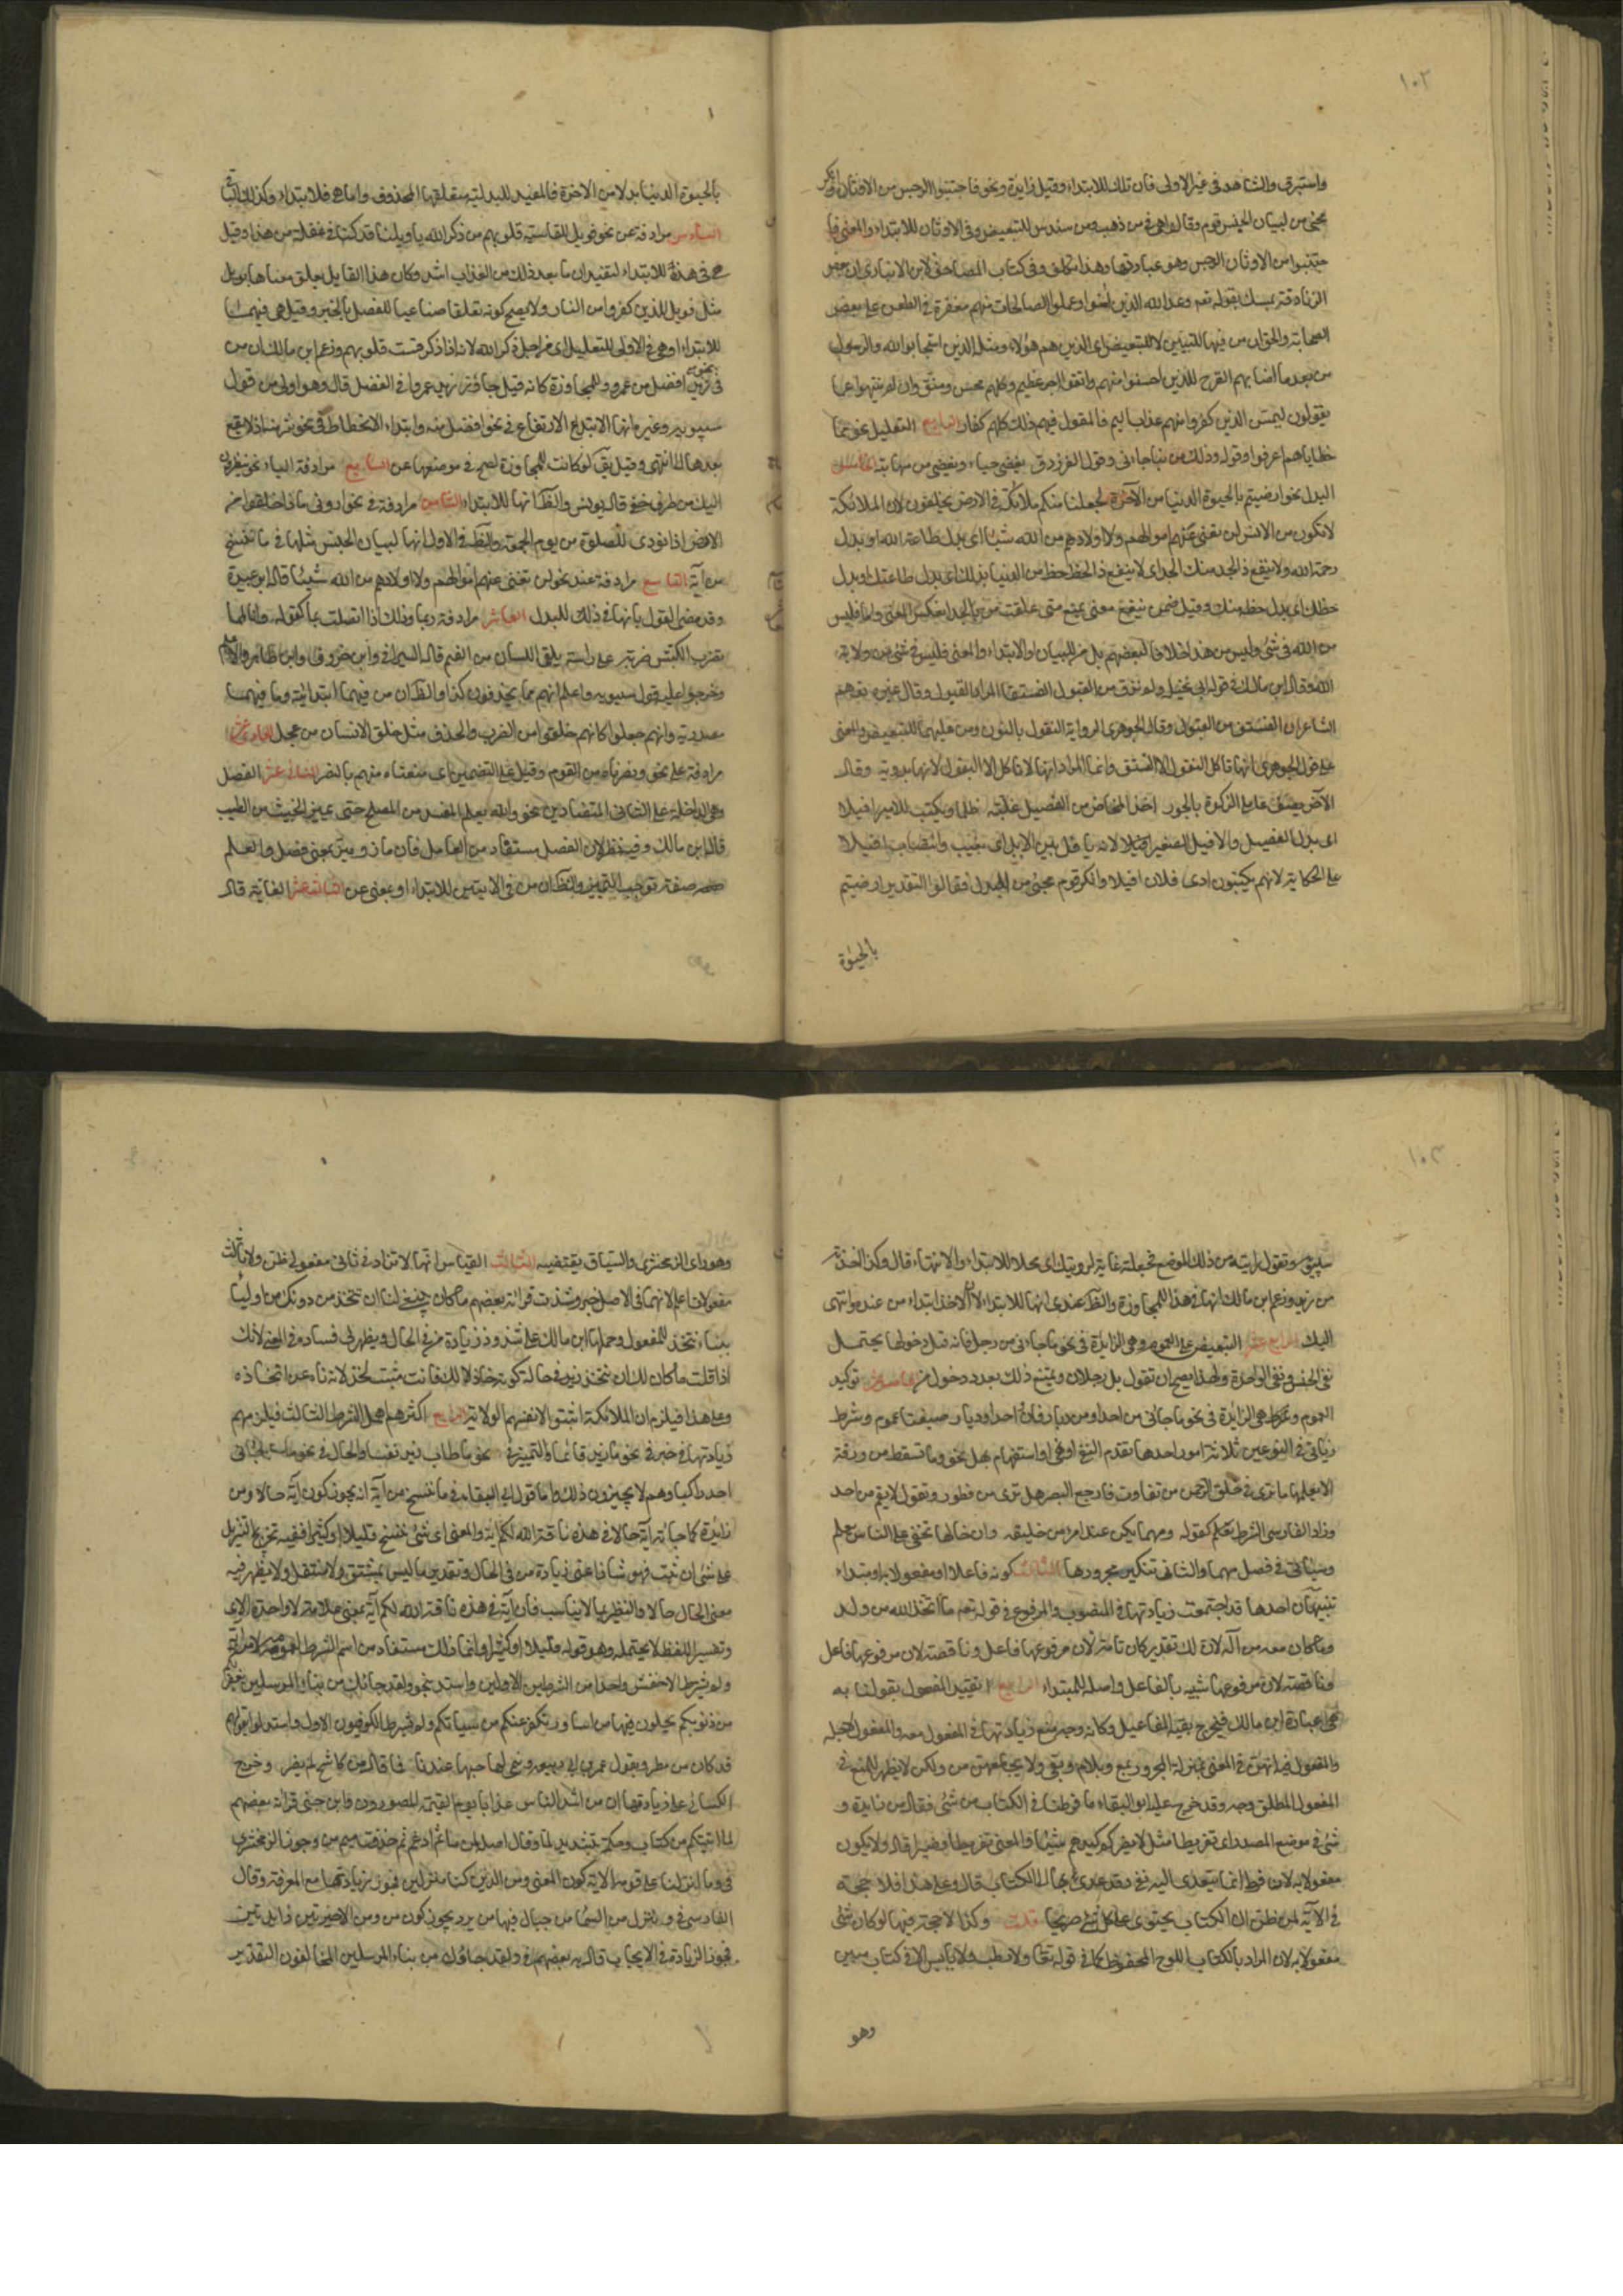 ١٠٢
واستبرق والشاهد في غير الاولى فان تلك للابتداء وقيل زايدة ونحو فاجتنبوا الرجس من الاوثان وانكر
مجئ من لبيان الجنس قوم وقالوا هي في من ذهب ومن سندس للتبعيض وفي الاوثان للابتداء والمعنى فا
جتنبوا من الاوثان الرجس وهو عبادتها وهذا تكلف وفي كتاب المصاحف لابن الانباري ان بعض
الزنادقة تمسك بقوله تعم وعد الله الذين امنوا وعملوا الصالحات منهم مغفرة في الطعن على بعض
الصحابة والحق ان من فيها للتبيين لا للتبعيض اى الذين هم هؤلاء ومثله الذين استجابوا لله والرسول
من بعد ما اصابهم القرح للذين احسنوا منهم واتقوا اجر عظيم وكلهم محسن ومتق وان لم ينتهوا عما
يقولون ليمسن الذين كفروا منهم عذاب اليم فالمقول فيهم ذلك كلهم كفار الرابع التعليل نحو مما
خطاياهم اغرقوا وقوله وذلك من نبا جاءنى وقول الفرزدق يغضى حياء ويغضى من مهابته الخامس
البدل نحو ارضيتم بالحيوة الدنيا من الآخرة لجعلنا منكم ملائكة في الارض يخلفون لان الملائكة
لا تكون من الانس لن تغنى عنهم اموالهم ولا اولادهم من الله شيئا اى بدل طاعة الله او بدل
رحمة الله ولا ينفع ذا الجد منك الجد اى لا ينفع ذا الحظ حظه من الدنيا بذلك اى بدل طاعتك او بدل
حظك اى بدل حظه منك وقيل ضمن ينفع معنى يمنع متى علقت من بالجد انعكس المعنى واما فليس
من الله في شئ وليس من هذا خلافا لبعضهم بل من للبيان او الابتداء والمعنى فليس في شئ من ولاية
الله وقال ابن مالك في قول ابى نخيلة ولم تذق من البقول الفستقا المراد البقول وقال غيره توهم
الشاعر ان الفستق من البقول وقال الجوهرى الرواية النقول بالنون ومن عليهما للتبعيض والمعنى
على قول الجوهرى انها تاكل النقول الا الفستق وانما المراد انها لا تاكل الا البقول لانها بدوية وقال
الآخر يصف عاملى الزكوة بالجور اخذوا المخاض من الفصيل غلبة ظلما ويكتب للامير افيلا
اى بدل الفصيل والافيل الصغير لانه يافل بين الابل اى يغيب وانتصاب افيلا
على الحكاية لانهم يكتبون ادى فلان افيلا وانكر قوم مجئ من للبدل فقالوا التقدير ارضيتم
بالحيوة
بالحيوة الدنيا بدلا من الاخرة فالمفيد للبدلية متعلقها المحذوف واما هي فللابتداء وكذا الباقى
السادس مرادفة عن نحو فويل للقاسية قلوبهم من ذكر الله يا ويلنا قد كنا في غفلة من هذا وقيل
هي في هذه للابتداء لتفيد ان ما بعد ذلك من العذاب اشد وكان هذا القايل يعلق معناها بويل
مثل فويل للذين كفروا من النار ولا يصح كونه تعلقا صناعيا للفصل بالخبر وقيل هي فيهما
للابتداء او هي في الاولى للتعليل اى من اجل ذكر الله لانه اذا ذكر قست قلوبهم وزعم ابن مالك ان من
في نحو زيد افضل من عمرو للمجاوزة كانه قيل جاوز زيد عمروا في الفضل قال وهو اولى من قول
سيبويه وغيره انها لابتداء الارتفاع في نحو افضل منه وابتداء الانحطاط في نحو شر منه اذ لا يقع
بعدها الى انتهى وقد يق لو كانت للمجاوزة لصح في موضعها عن السابع مرادفة الباء نحو ينظرون
اليك من طرف خفى قاله يونس والظ انها للابتداء الثامن مرادفة في نحو ارونى ماذا خلقوا من
الارض اذا نودى للصلوة من يوم الجمعة والظ في الاول انها لبيان الجنس مثلها في ما ننسخ
من آية التاسع مرادفة عند نحو لن تغنى عنهم اموالهم ولا اولادهم من الله شيئا قاله ابو عبيدة
وقد مضى القول بانها في ذلك للبدل العاشر مرادفة ربما وذلك اذا اتصلت بما كقوله وانا لمما
نضرب الكبش ضربة على راسه يلقى اللسان من الفم قاله السيرافى وابن خروف وابن طاهر والاعلم
وخرجوا عليه قول سيبويه واعلم انهم مما يحذفون كذا والظ ان من فيهما ابتدائية وما فيهما
مصدرية وانهم جعلوا كانهم خلقوا من الضرب والحذف مثل خلق الانسان من عجل الحادى عشر
مرادفة على نحو ونصرناه من القوم وقيل على التضمين اى منعناه منهم بالنصر الثانى عشر الفصل
وهي الداخلة على الثانى المتضادين نحو والله يعلم المفسد من المصلح حتى يميز الخبيث من الطيب
قاله ابن مالك وفيه نظر لان الفصل مستفاد من العامل فان ماز وميز بمعنى فصل والعلم
صفة توجب التمييز والظ ان من في الايتين للابتداء او بمعنى عن الثالث عشر الغاية قال
١٠٣
سيبويه وتقول رايته من ذلك الموضع فجعلته غاية لرويتك اى محلا للابتداء والانتهاء قال وكذا اخذته
من زيد وزعم ابن مالك انها في هذا للمجاوزة والظ عندى انها للابتداء لان الاخذ ابتداء من عنده وانتهى
اليك الرابع عشر التنصيص على العموم وهي الزايدة في نحو ما جاءنى من رجل فانه قبل دخولها يحتمل
نفى الجنس ونفى الواحدة ولهذا يصح ان تقول بل رجلان ويمتنع ذلك بعد دخول من الخامس عشر توكيد
العموم وهي الزايدة في نحو ما جاءنى من احد او من ديار فان احدا وديار صيغتا عموم وشرط
زيادتها في النوعين ثلاثة امور احدها تقدم النفى او نهى او استفهام بهل نحو وما تسقط من ورقة
الا يعلمها ما ترى في خلق الرحمن من تفاوت فارجع البصر هل ترى من فطور وتقول لا يقم من احد
وزاد الفارسى الشرط كقوله ومهما يكن عند امرء من خليقة وان خالها تخفى على الناس تعلم
وسياتى في فصل مهما والثانى تنكير مجرورها الثالث كونه فاعلا او مفعولا به او مبتداء
تنبيهات احدها قد اجتمعت زيادتها في المنصوب والمرفوع في قوله تعم ما اتخذ الله من ولد
وما كان معه من اله لان لك تقدير كان تامة لان مرفوعها فاعل وناقصة لان مرفوعها فاعل
وناقصة لان مرفوعها شبيه بالفاعل واصله المبتداء الرابع تقييد المفعول بقولنا به
هي عبارة ابن مالك فيخرج بقية المفاعيل وكان وجه منع زيادتها في المفعول معه والمفعول لاجله
والمفعول فيه انهن في المعنى بمنزلة المجرور بمع وباللام وبفى ولا تجامعهن من ولكن لا يظهر للمنع في
المفعول المطلق وجه وقد خرج عليه ابو البقاء ما فرطنا في الكتاب من شئ فقال من زايدة و
شئ في موضع المصدر اى تفريطا مثل لا يضركم كيدهم شيئا والمعنى تفريطا وضيرا قال ولا يكون
مفعولا به لان فرط انما يتعدى اليه بفى وقد عدى بها الى الكتاب قال وعلى هذا فلا حجة
في الآية لمن ظن ان الكتاب يحتوى على كل شئ صريحا قلت وكذا لا حجة فيها لو كان شئ
مفعولا به لان المراد بالكتاب اللوح المحفوظ كما في قوله تعا ولا رطب ولا يابس الا في كتاب مبين
وهو
وهو راى الزمخشرى والسياق يقتضيه الثالث القياس انها لا تزاد في ثانى مفعولى ظن ولا ثالث
مفعولات اعلم لانهما في الاصل خبر وشذت قرائة بعضهم ما كان ينبغى لنا ان نتخذ من دونك من اولياء
ببناء نتخذ للمفعول وحملها ابن مالك على شذوذ زيادة من في الحال ويظهر لى فساده في المعنى لانك
اذا قلت ما كان لك ان تتخذ زيدا في حالة كونه خاذلا لك فانت مثبت لخذلانه ناه عن اتخاذه
وعلى هذا فيلزم ان الملائكة اثبتوا لانفسهم الولاية الرابع اكثرهم اهمل الشرط الثالث فيلزمهم
زيادتها في خبر في نحو ما زيد قائما والتمييز في نحو ما طاب زيد نفسا والحال في نحو ما جاءنى
احد راكبا وهم لا يجيزون ذلك واما قول ابى البقاء في ما ننسخ من آية انه يجوز كون آية حالا ومن
زايدة كما جائت آية حالا في هذه ناقة الله لكم آية والمعنى اى شئ ننسخ قليلا او كثيرا ففيه تخريج التنزيل
على شئ ان ثبت فهو شاذ اعنى زيادة من في الحال وتقدير ما ليس بمشتق ولا منتقل ولا يظهر فيه
معنى الحال حالا والتنظير بما لا يناسب فان آية في هذه ناقة الله لكم آية بمعنى علامة لا واحدة الاى
وتفسير اللفظ بما لا يحتمله وهو قوله قليلا او كثيرا وانما ذلك مستفاد من اسم الشرط لعمومه لا من آية
ولم يشترط الاخفش واحدا من الشرطين الاولين واستدل بنحو ولقد جائك من نبا المرسلين يغفر لكم
من ذنوبكم يحلون فيها من اساور يكفر عنكم من سيئاتكم ولم يشترط الكوفيون الاول واستدلوا بقولهم
قد كان من مطر وبقول عمر بن ابى ربيعة وينمى لها حبها عندنا فما قال من كاشح لم يضر وخرج
الكسائى على زيادتها ان من اشد الناس عذابا يوم القيمة المصورون وابن جنى قرائة بعضهم
لما اتيتكم من كتاب وحكمة بتشديد لما وقال اصله لمن ما ثم ادغم ثم حذفت ميم من وجوز الزمخشرى
في وما انزلنا على قومه الاية كون المعنى ومن الذين كنا منزلين فجوز زيادتها مع المعرفة وقال
الفارسى في وننزل من السماء من جبال فيها من برد يجوز كون من ومن الاخيرتين زايدتين
فجوز الزيادة في الايجاب قال به بعضهم في ولقد جاءك من نباء المرسلين المخالفون التقدير